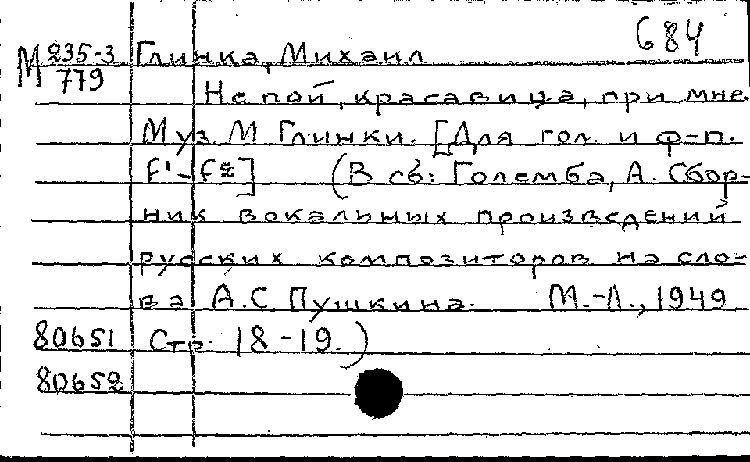 684
М 235-3 Глинка, Михаил
779
Не пой, красавица, при мне
Муз. М Глинки. [Для гол. и ф-п.
f¹-f²] (В сб: Голємба, А. Сбор-
ник вокальных произведений
русских композиторов на сло-
ва А.С. Пушкина. М.-Л., 1949
80651 Стр. 18-19.)
80652